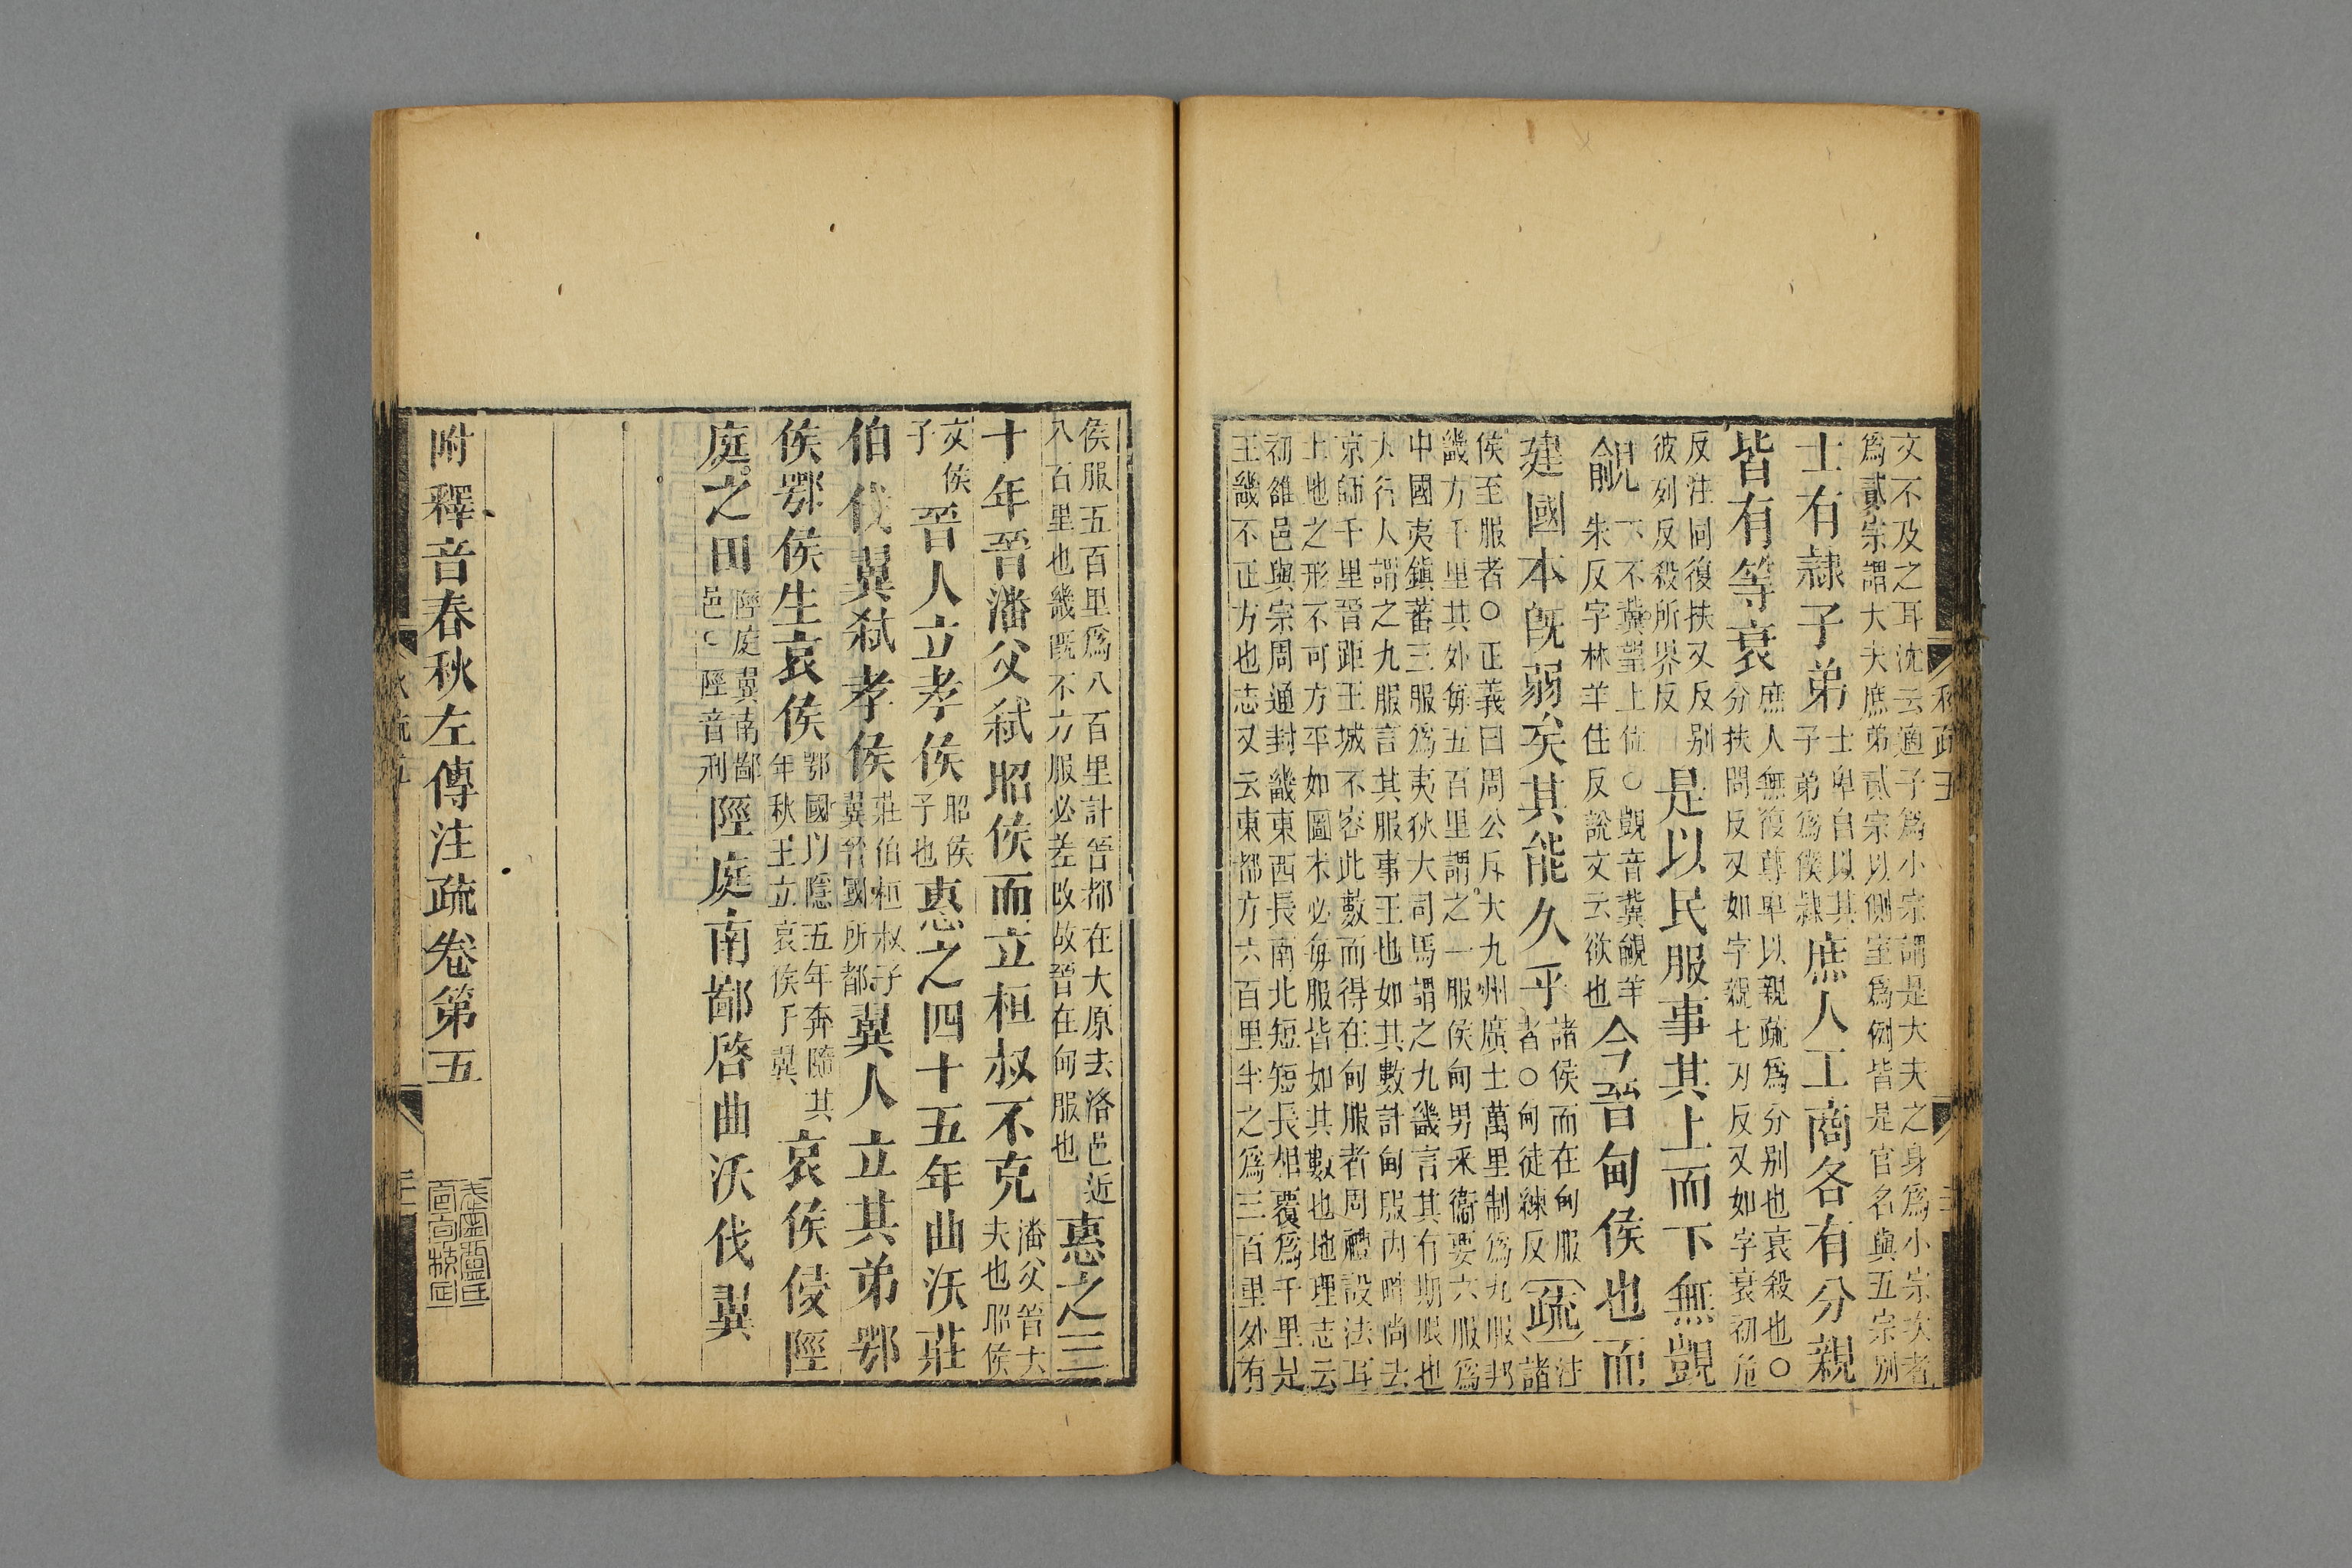 文不及之耳沈云適子爲小宗謂是大夫之身爲小宗次者
爲貳宗謂大夫庶弟貳宗以側室爲例皆是官名與五宗別
士有隷子弟
士卑自以其
子弟爲僕隷
庶人工商各有分親
皆有等衰
庶人無復尊卑以親疏爲分别也衰殺也○
分扶問反又如字親七刃反又如字衰初危
反注同復扶又反别
彼列反殺所界反
是以民服事其上而下無覬
覦
下不冀望上位○覬音冀覦羊
朱反字林羊住反說文云欲也
今晉甸侯也而
建國本既弱矣其能久乎
諸侯而在甸服
者○甸徒練反
疏
注
諸
侯至服者○正義曰周公斥大九州廣土萬里制爲九服邦
畿方千里其外毎五百里謂之一服侯甸男采衞要六服爲
中國夷鎭蕃三服爲夷狄大司馬謂之九畿言其有期限也
大行人謂之九服言其服事王也如其數計甸服内畔尚去
京師千里晉距王城不容此數而得在甸服者周禮設法耳
土地之形不可方平如圖未必毎服皆如其數也地理志云
初雒邑與宗周通封畿東西長南北短短長相覆爲千里是
王畿不正方也志又云東都方六百里半之爲三百里外有
侯服五百里爲八百里計晉都在大原去洛邑近
八百里也畿既不方服必差改故晉在甸服也
惠之三
十年晉潘父弑昭侯而立桓叔不克
潘父晉大
夫也昭侯
文侯
子
晉人立孝侯
昭侯
子也
惠之四十五年曲沃莊
伯伐翼弑孝侯
莊伯桓叔子
翼晉國所都
翼人立其弟鄂
侯鄂侯生哀侯
鄂國以隱五年奔隨其
年秋王立哀侯于翼
哀侯侵陘
庭之田
陘庭翼南鄙
邑○陘音刑
陘庭南鄙啓曲沃伐翼
附釋音春秋左傳注疏卷第五